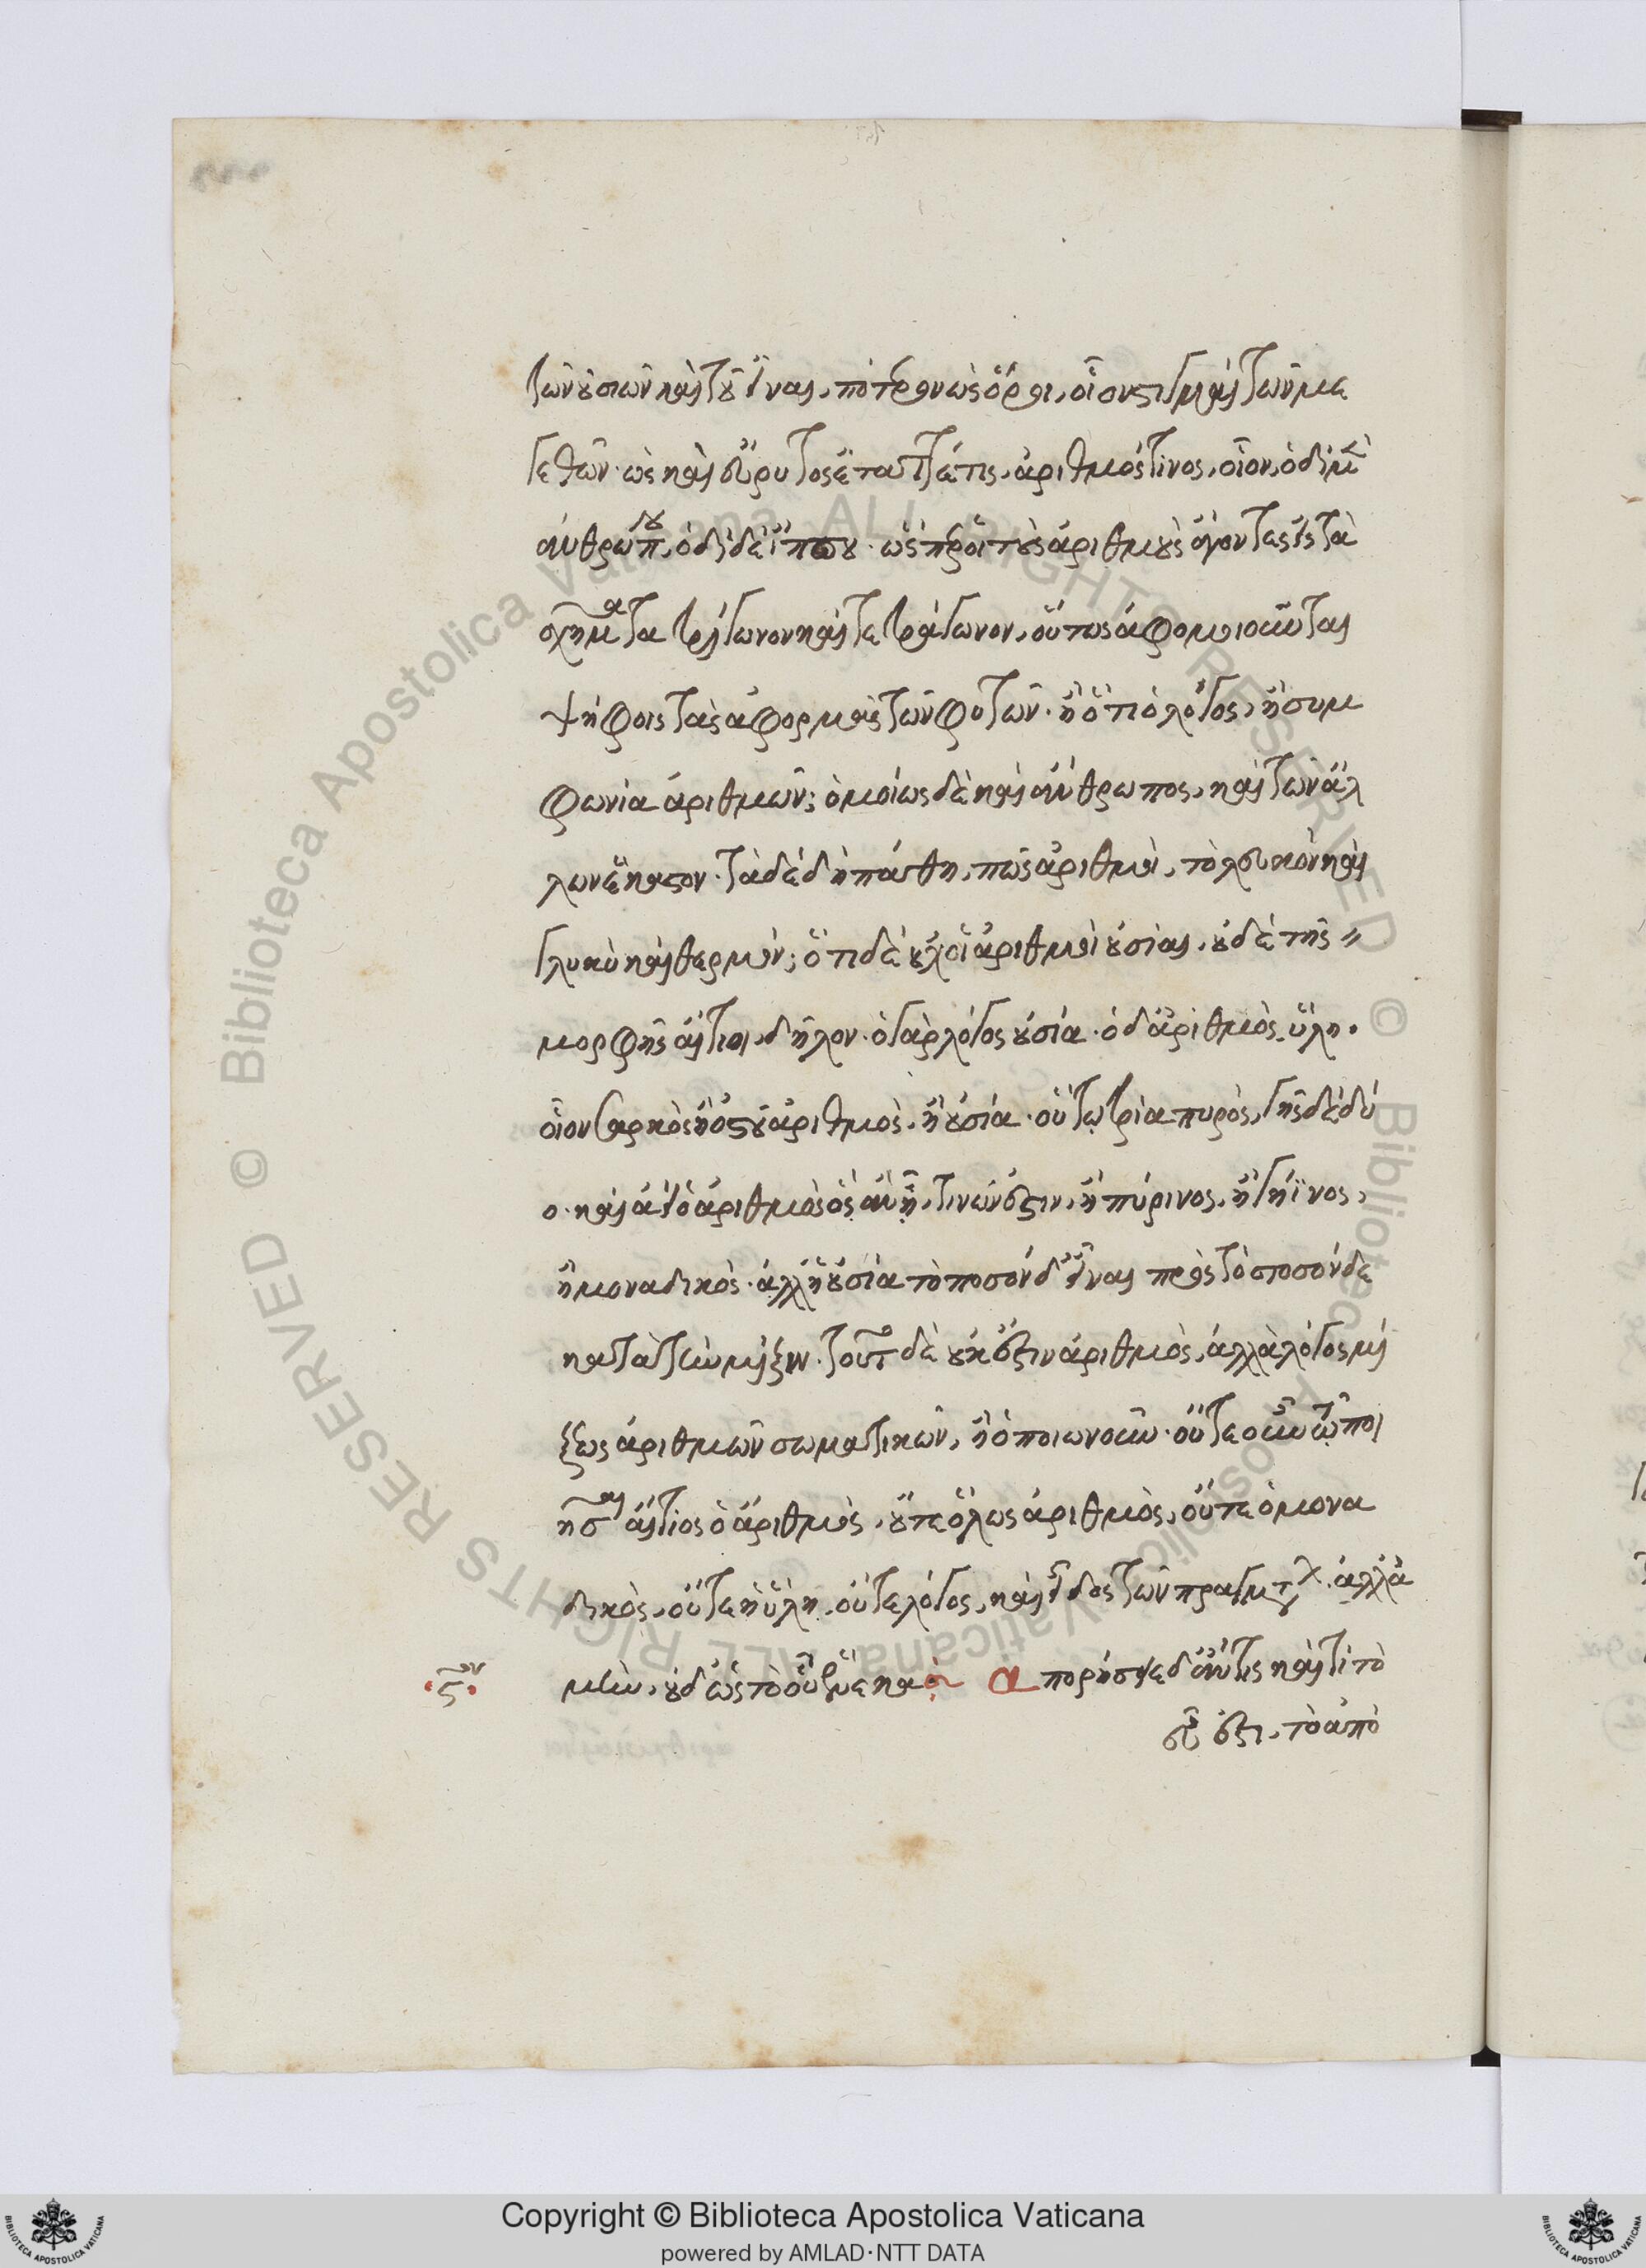 τῶν οὐσιῶν καὶ τοῦ εἶναι, πότερον ὡς ὅροι, οἷον στιγμαὶ τῶν με
γεθῶν· ὡς καὶ εὔρυτος ἔταττέ τις ἀριθμός τινος, οἷον, ὁδὶ μὲν
ἀνθρώπου, ὁδὶ δὲ ἵππου· ὥσπερ οἱ τοὺς ἀριθμοὺς ἄγοντες εἰς τὰ
σχήματα τρίγωνον καὶ τετράγωνον, οὕτως ἀφομοιοῦνται
ψήφοις τὰς ἀφορμὰς τῶν φυτῶν· ἢ ὅτι ὁ λόγος, ἡ συμ
φωνία ἀριθμῶν; ὁμοίως δὲ καὶ ἄνθρωπος, καὶ τῶν ἄλ
λων ἕκαστον· τὰ δὲ δὴ πάθη, πῶς ἀριθμοὶ, τὸ λευκὸν καὶ
γλυκὺ καὶ θερμόν; ὅτι δὲ οὐχ οἱ ἀριθμοὶ οὐσίαι, οὐδὲ τῆς
μορφῆς αἴτιοι, δῆλον· ὁ γὰρ λόγος οὐσία· ὁ δ ἀριθμὸς ὕλη.
οἷον σαρκὸς ἢ ὀστοῦ ἀριθμὸς, ἡ οὐσία· οὕτω τρία πυρὸς, γῆς δὲ δύ
ο· καὶ ἀεὶ ὁ ἀριθμὸς ὃς ἂν ᾖ, τινῶν ἐστιν, ἢ πύρινος, ἢ γήϊνος,
ἢ μοναδικός· ἀλλ ἡ οὐσία τὸ ποσόν δ εἶναι πρὸς τὸ ποσόνδε
κατὰ τὴν μίξιν· τοῦτο δὲ οὐκ ἔστιν ἀριθμὸς, ἀλλὰ λόγος μί
ξεως ἀριθμῶν σωματικῶν, ἢ ὁποιωνοῦν· οὔτε οὖν τῷ ποι
ῆσαι αἴτιος ὁ ἀριθμὸς, οὔτε ὅλως ἀριθμὸς, οὔτε ὁ μονα
δικὸς, οὔτε ἡ ὕλη, οὔτε λόγος, καὶ εἶδος τῶν πραγμάτων· ἀλλὰ
μὴν, οὐδ ὡς τὸ οὗ ἕνεκα Ἀπορήσειε δ ἄν τις καὶ τί τὸ
εὖ ἐστι, τὸ ἀπὸ